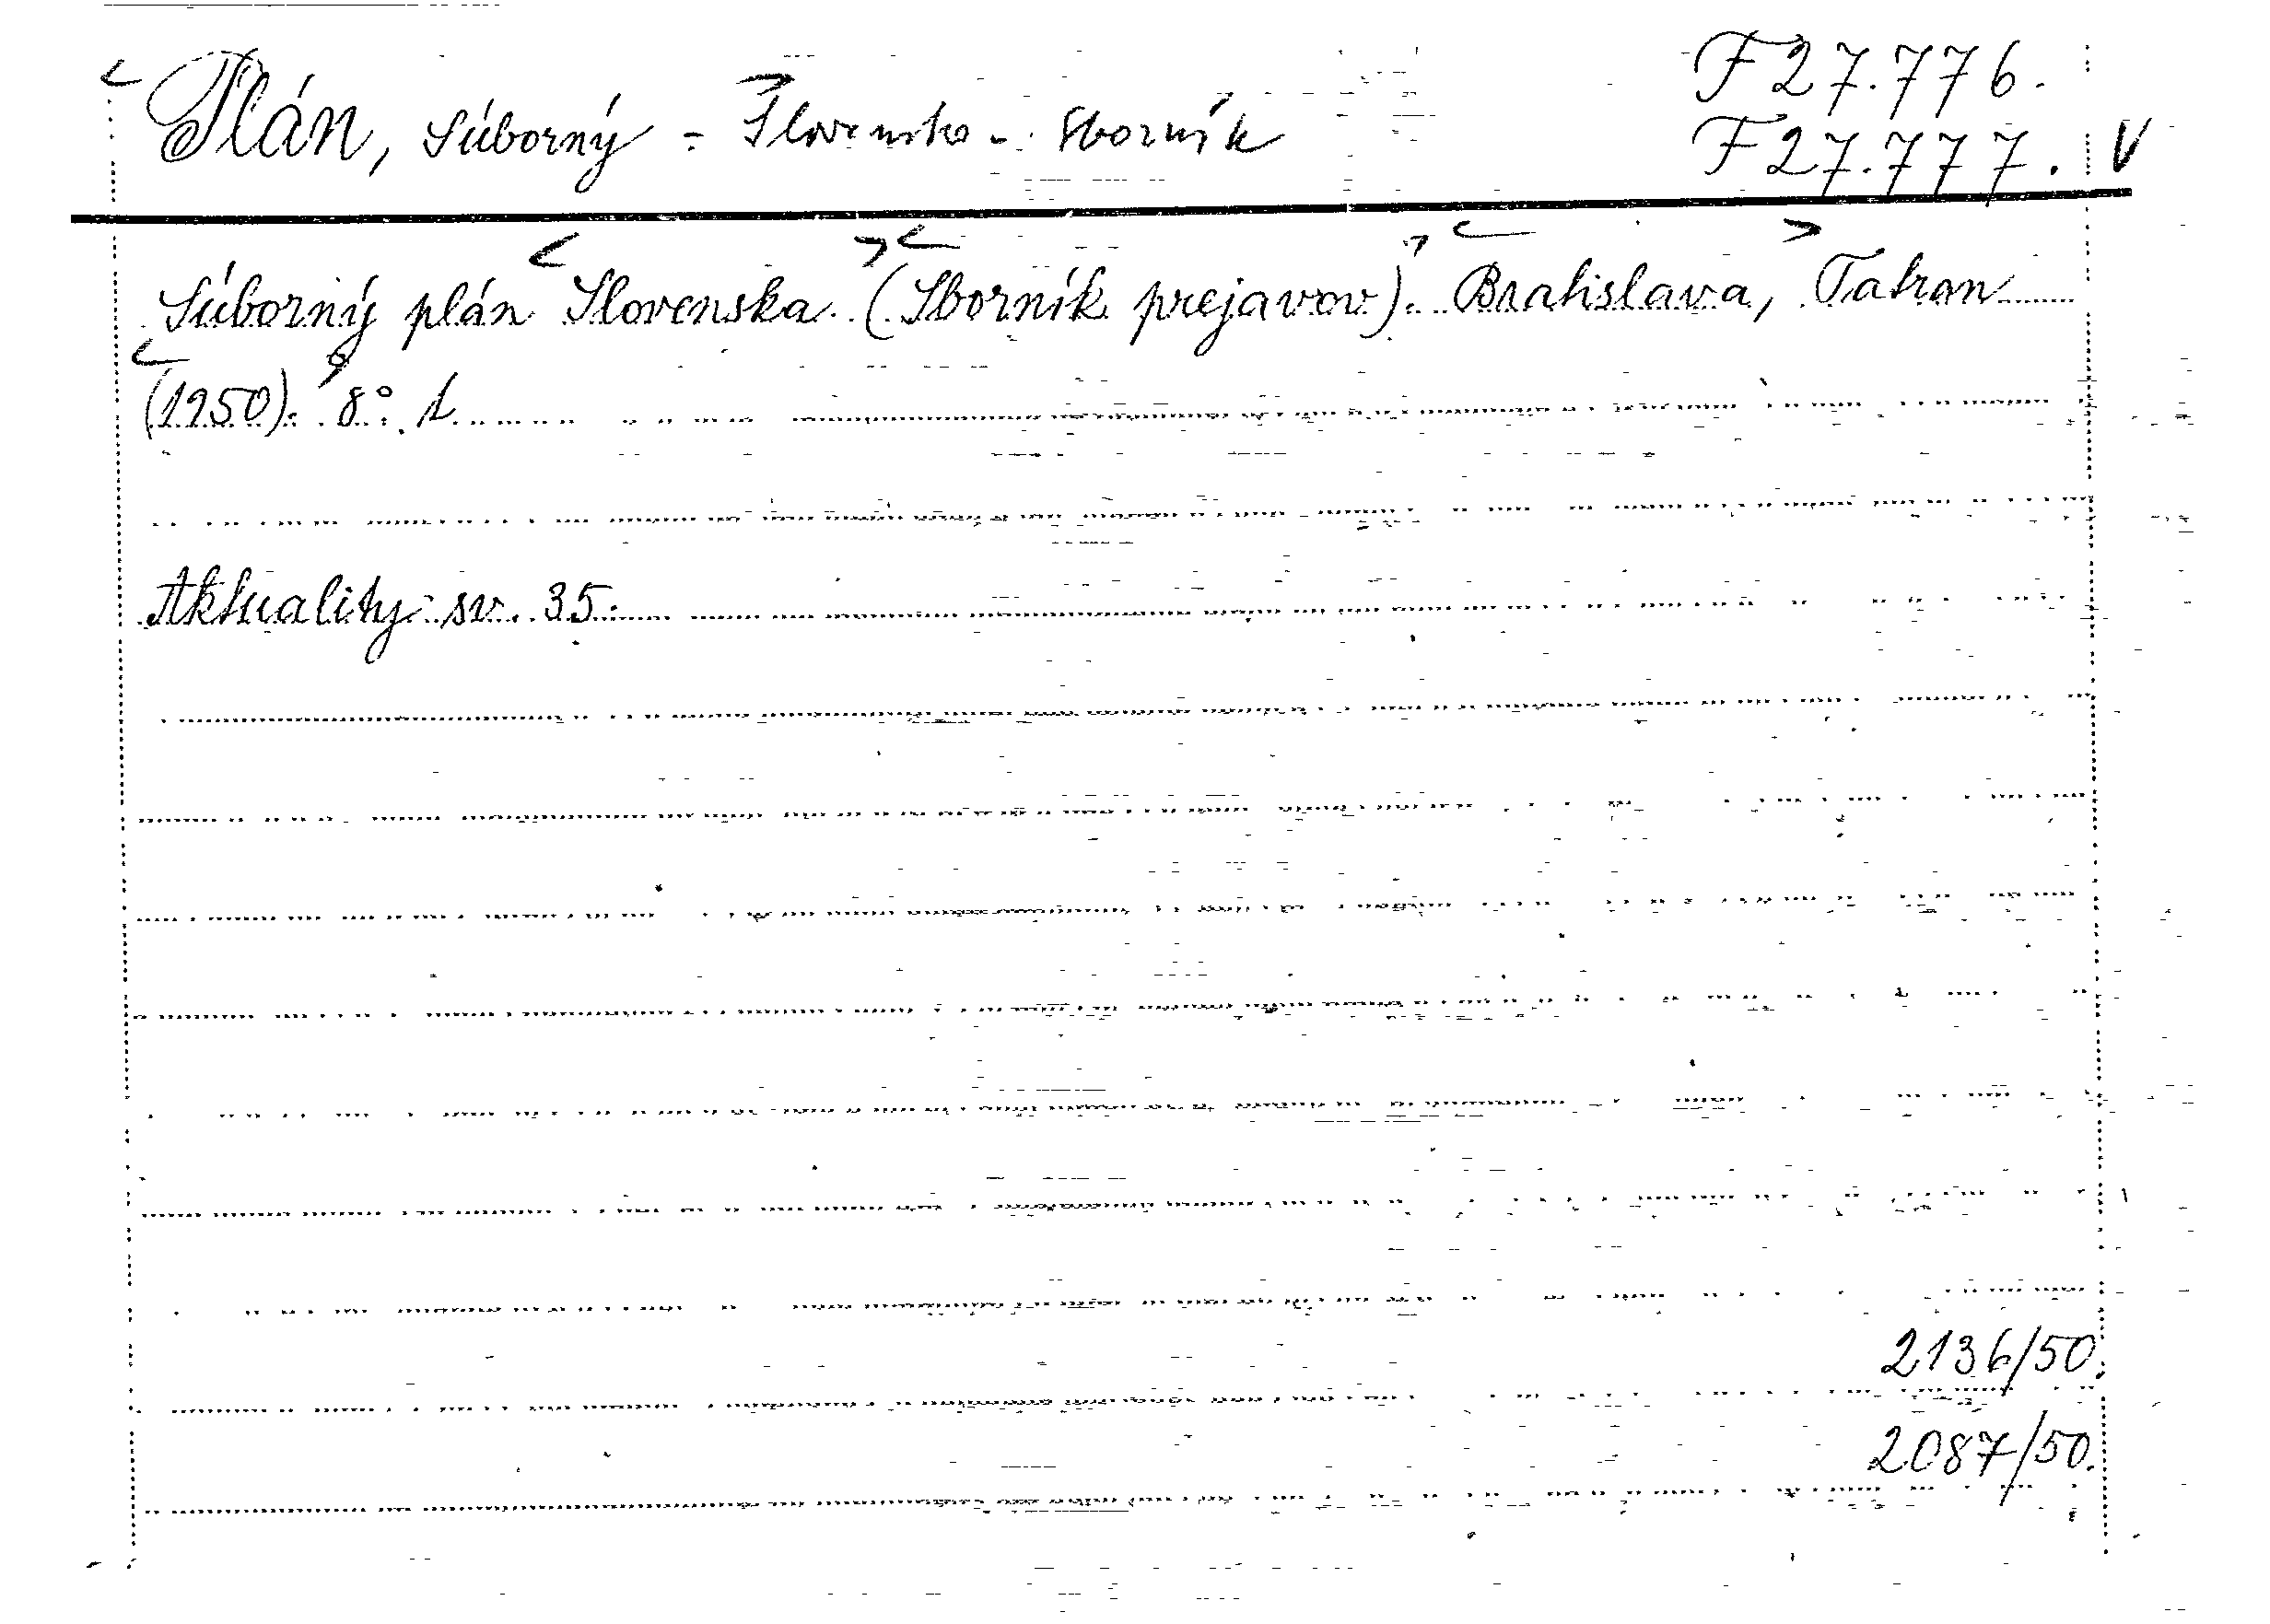 F 27.776.
Plán, súborný - Slovensko - sborník
F 27.777. V
Súborný plán Slovenska. (Sborník prejavov). Bratislava, Tatran
(1950). 8°. 1.
Aktuality sv. 35.
2136/50.
2087/50.